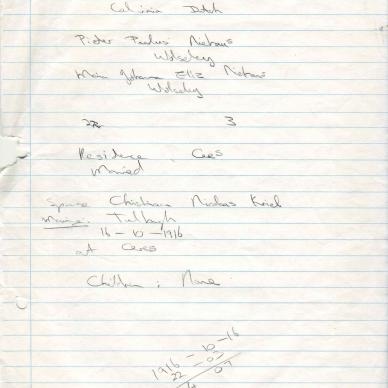 Pieter Paulus Niehaus
Wolseley
Maria Johanna Eliz Niehaus
Wolseley
3
Residence Ceres
Married
Spouse Christiaan Nicolaas Kriel
Tulbagh
16-10-1916
at Ceres
Children : None
1916 - 10 - 16
22
07